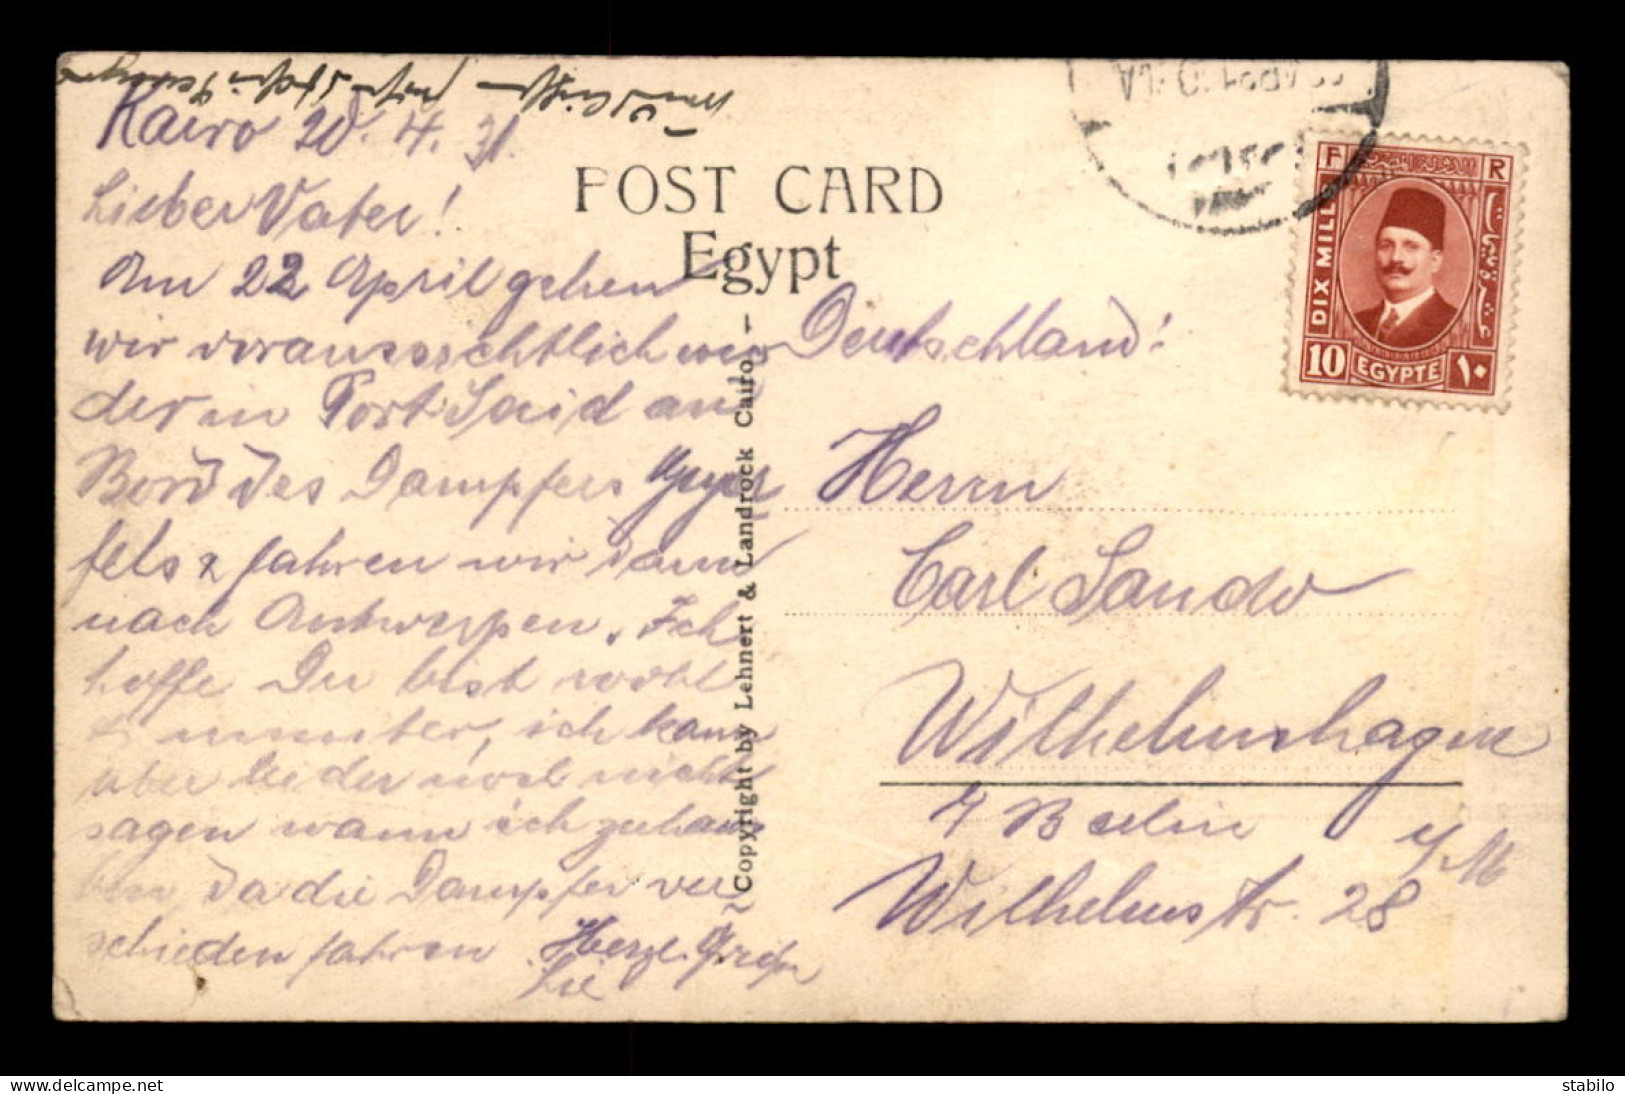 Kairo 20. 4. 31.
Lieber Vater!
Am 22 April gehen
wir voraussichtlich wie
der in Port Said an
Bord des Dampfers Geyer
fels & fahren wir dann
nach Antwerpen. Ich
hoffe Du bist wohl
& munter, ich kann
aber leider noch nicht
sagen wann ich zuhause
bin, da die Dampfer ver
schieden fahren. Herzl. Grüße
POST CARD
Egypt
Copyright by Lehnert & Landrock Cairo
F R
DIX MILL
10 EGYPTE ١٠
Deutschland!
Herrn
Carl Sandw
Wilhelmshagen
Berlin
Wilhelmstr. 28
delcampe.net
stabilo